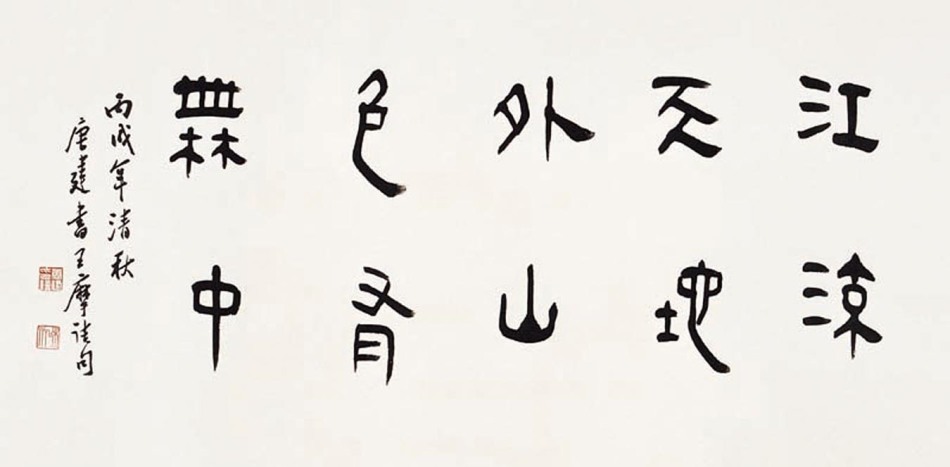 江流
天地
外山
色有
無中
丙戌年清秋
唐建書王摩詰句